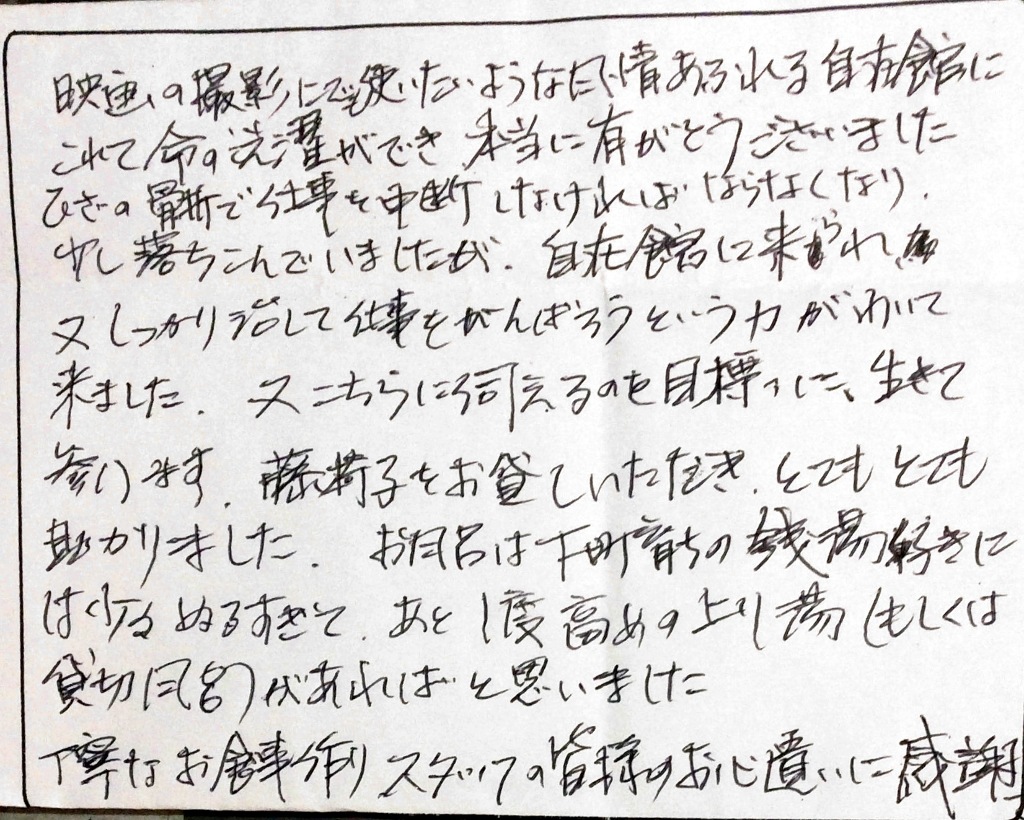 映画の撮影にでも使いたいような風情あふれる自在館に
これて命の洗濯ができ 本当に有がとうございました
ひざの骨折で仕事を中断しなければならなくなり、
少し落ちこんでいましたが、自在館に来られ、
又しっかり治して仕事をがんばろうという力がわいて
来ました。又こちらに伺えるのを目標に、生きて
参ります。藤椅子をお貸していただき、とてもとても
助かりました。お風呂は下町育ちの銭湯好きに
は少々ぬるすぎて、あと1度高めの上り湯(もしくは
貸切風呂)があればと思いました
丁寧なお食事作り スタッフの皆様のお心遣いに感謝